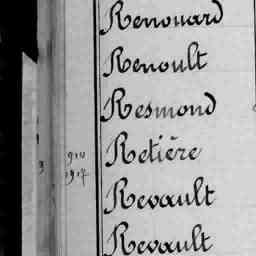 Renouard
Renoult
Resmond
910 Retière
1917
Revault
Revault